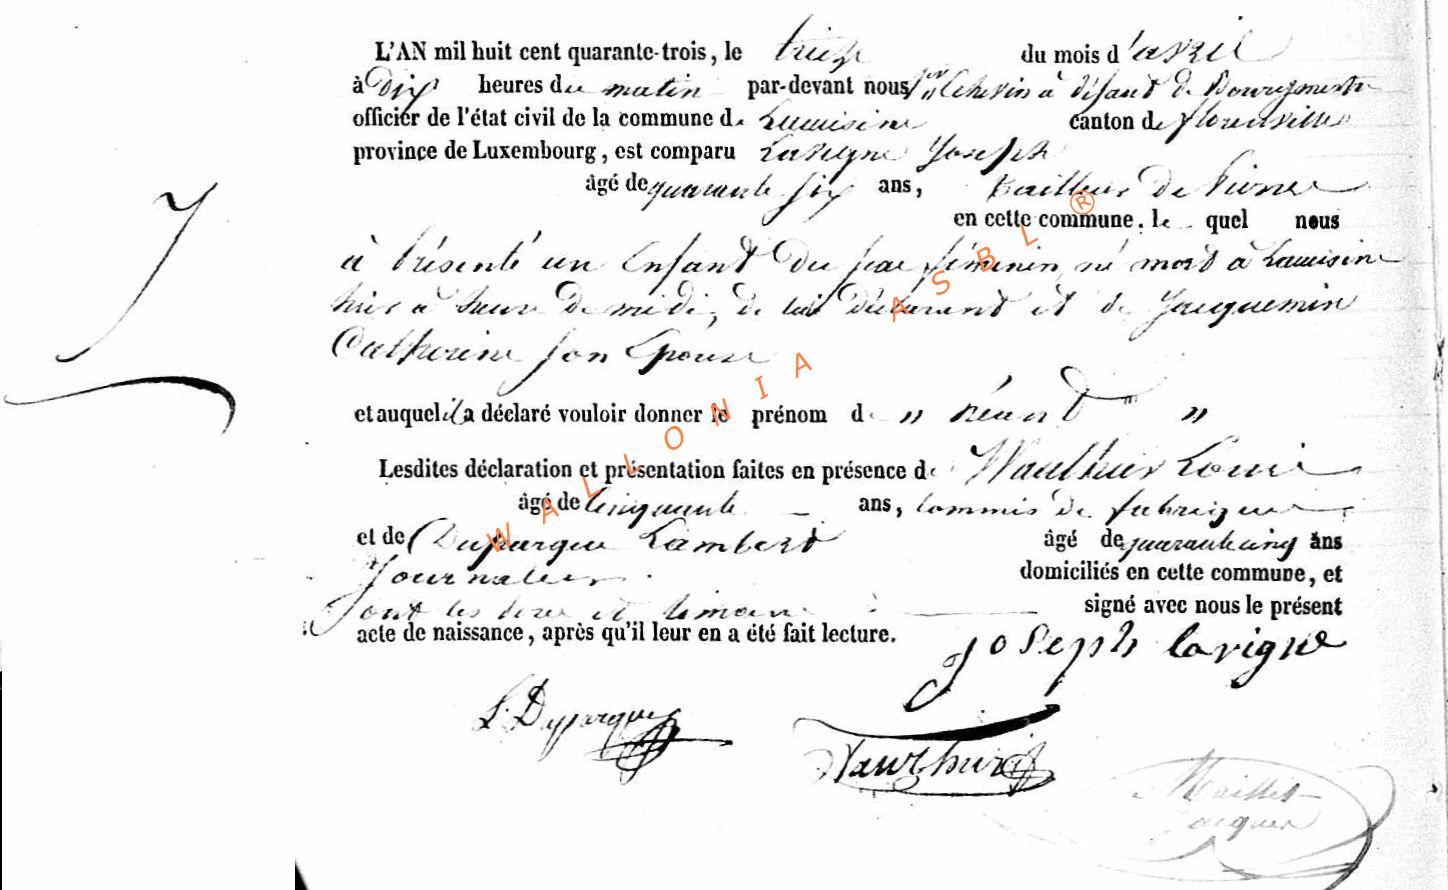 L'AN mil huit cent quarante-trois, le treize du mois d'avril
à Dix heures du matin par-devant nous 1er Echevin à défaut de Bourgmestre
officier de l'état civil de la commune de Lacuisine canton de florenville
province de Luxembourg, est comparu Lavigne Joseph
âgé de quarante six ans, tailleur de Pierre
en cette commune. le quel nous
à présenté un Enfant du sexe féminin né mort à Lacuisine
hier à heure de midi, de lui Déclarant et de Jacquemin
Catherine son Epouse
et auquel il a déclaré vouloir donner le prénom de " néant "
Lesdites déclaration et présentation faites en présence de Louis
âgé de Cinquante ans, Commis de fabrique
et de Duparque Lambert âgé de quarante cinq ans
Journalier domiciliés en cette commune, et
ont les père et témoins signé avec nous le présent
acte de naissance, après qu'il leur en a été fait lecture.
Joseph lavigne
L. Duparque
Maillet
Jacques
WALLONIA ASBL ®